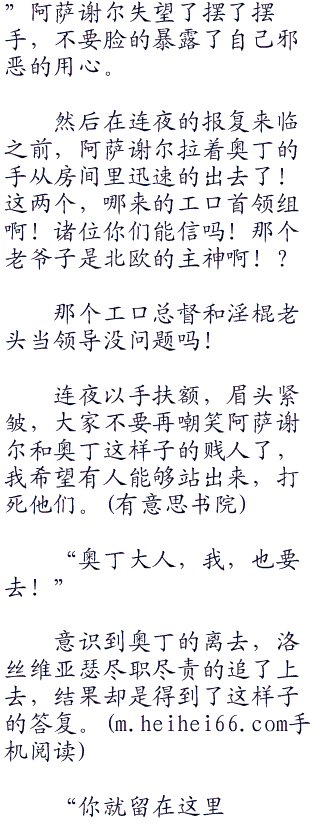 ”阿萨谢尔失望了摆了摆
手，不要脸的暴露了自己邪
恶的用心。
然后在连夜的报复来临
之前，阿萨谢尔拉着奥丁的
手从房间里迅速的出去了！
这两个，哪来的工口首领组
啊！诸位你们能信吗！那个
老爷子是北欧的主神啊！？
那个工口总督和淫棍老
头当领导没问题吗！
连夜以手扶额，眉头紧
皱，大家不要再嘲笑阿萨谢
尔和奥丁这样子的贱人了，
我希望有人能够站出来，打
死他们。(有意思书院)
“奥丁大人，我，也要
去！”
意识到奥丁的离去，洛
丝维亚瑟尽职尽责的追了上
去，结果却是得到了这样子
的答复。(m.heihei66.com手
机阅读)
“你就留在这里